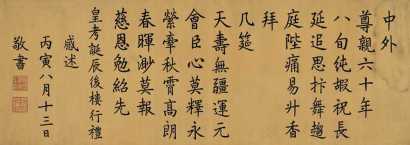 中外
尊親六十年
八旬純嘏祝長
延追思抃舞趨
庭陛痛易升香
拜
几筵
天壽無疆運元
會臣心莫釋永
縈牽秋霄高朗
春暉渺莫報
慈恩勉紹先
皇考誕辰後樓行禮
感述
丙寅八月十三日
敬書